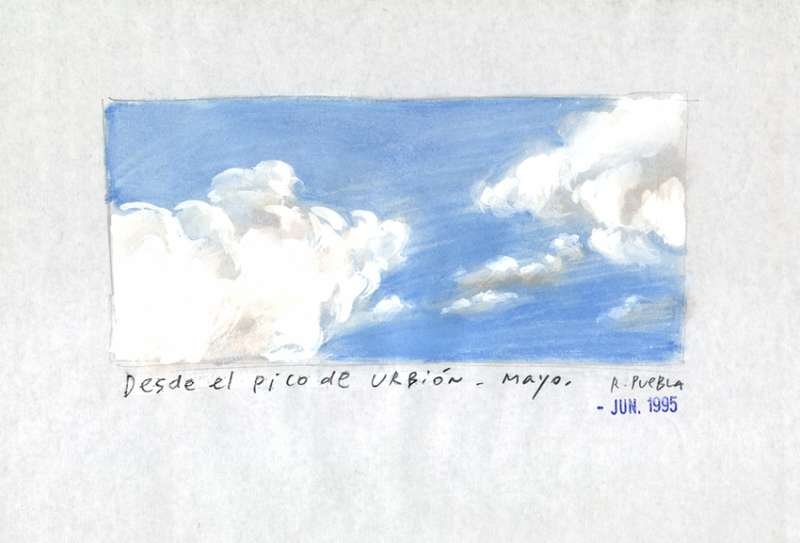 Desde el pico de URBIÓN - mayo.
R. PUEBLA
- JUN. 1995